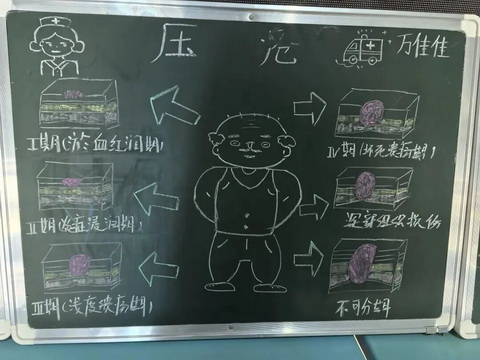 压疮
万佳佳
I期(淤血红润期)
IV期(坏死溃疡期)
II期(炎症浸润期)
深部组织损伤
III期(浅度溃疡期)
不可分期